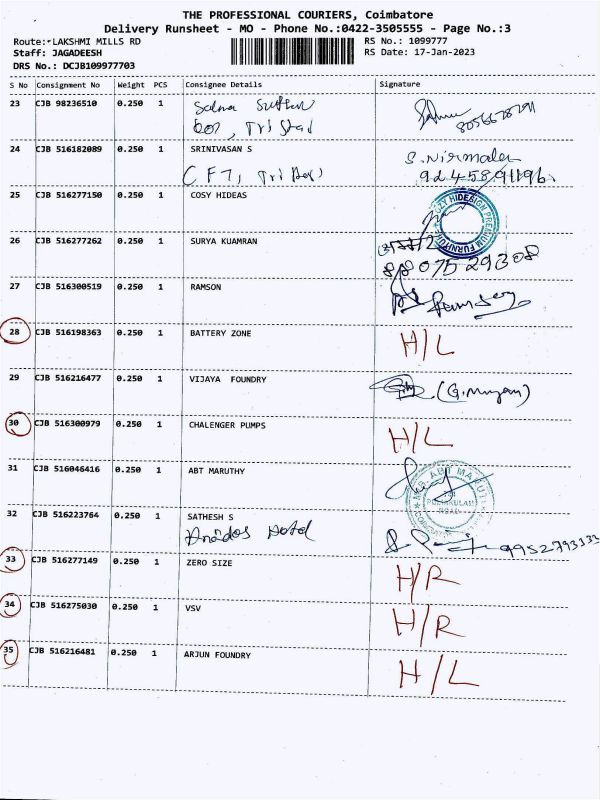 THE PROFESSIONAL COURIERS, Coimbatore
Delivery Runsheet - MO - Phone No.:0422-3505555 - Page No.:3
Route:-LAKSHMI MILLS RD
RS No.: 1099777
Staff: JAGADEESH
RS Date: 17-Jan-2023
DRS No.: DCJB109977703
S No Consignment No Weight PCS Consignee Details Signature
23 CJB 98236510 0.250 1
24 CJB 516182089 0.250 1 SRINIVASAN S S. Nirmala
25 CJB 516277150 0.250 1 COSY HIDEAS
26 CJB 516277262 0.250 1 SURYA KUAMRAN
8807529308
27 CJB 516300519 0.250 1 RAMSON
28 CJB 516198363 0.250 1 BATTERY ZONE H/L
29 CJB 516216477 0.250 1 VIJAYA FOUNDRY (G. Murugan)
30 CJB 516300979 0.250 1 CHALENGER PUMPS H/L
31 CJB 516046416 0.250 1 ABT MARUTHY
32 CJB 516223764 0.250 1 SATHESH S
9952793133
33 CJB 516277149 0.250 1 ZERO SIZE H/R
34 CJB 516275030 0.250 1 VSV H/R
35 CJB 516216481 0.250 1 ARJUN FOUNDRY H/L